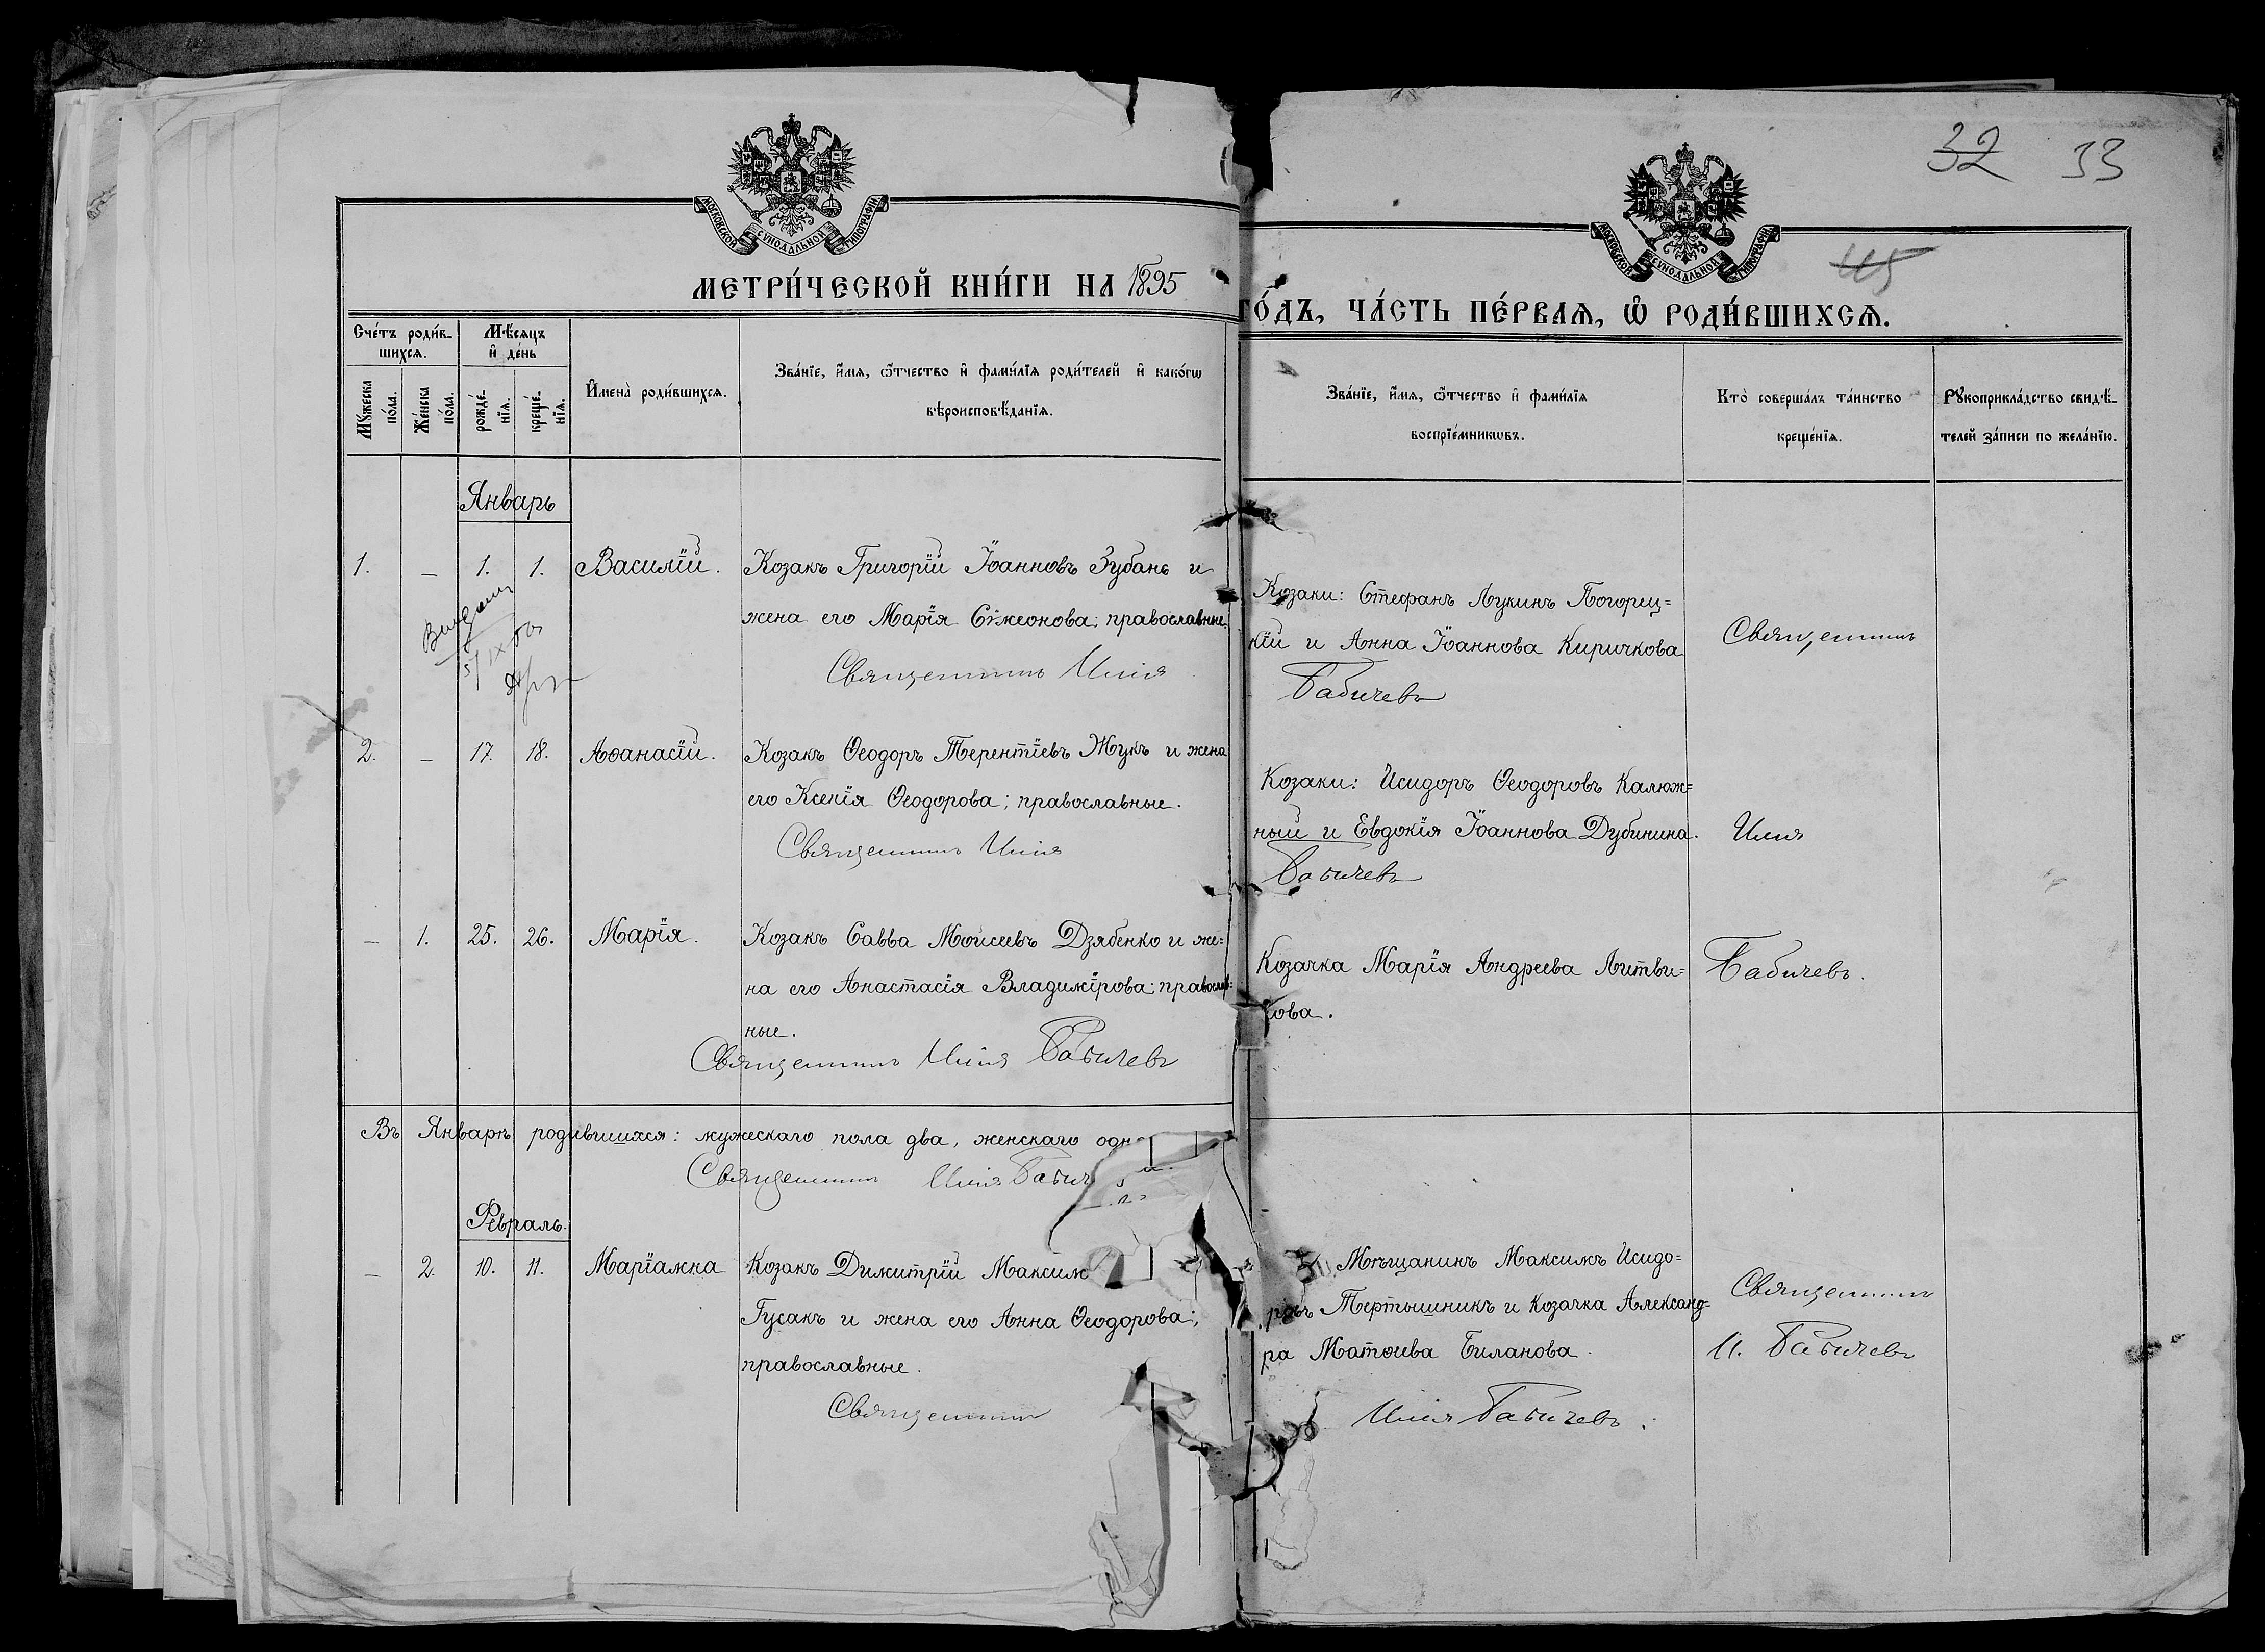 32 33
МОСКОВСКОЙ СѴНОДАЛЬНОЙ ТИПОГРАФІИ
МОСКОВСКОЙ СѴНОДАЛЬНОЙ ТИПОГРАФІИ
МЕТРИ́ЧЕСКОЙ КНИ́ГИ НА 1895
ГО́ДЪ, ЧА́СТЬ ПЕ́РВАѦ, Ѽ РОДИ́ВШИХСѦ.
Сче́тъ роди́в-
шихсѧ.
Мѣ́сѧцъ
и҆ де́нь
Мꙋ́жеска
по́ла.
Же́нска
по́ла.
рожде́-
нїѧ.
креще́-
нїѧ.
И҆мена̀ роди́вшихсѧ.
Зва́нїе, и҆́мѧ, ѻ҆́тчество и҆ фами́лїѧ роди́телей и҆ како́гѡ
вѣроисповѣ́данїѧ.
Зва́нїе, и҆́мѧ, ѻ҆́тчество и҆ фами́лїѧ
воспрїе́мникѡвъ.
Кто̀ соверша́лъ та́инство
креще́нїѧ.
Рꙋкоприкла́дство свидѣ́-
телей за́писи по жела́нїю.
Январь
1. — 1. 1. Василій. Козакъ Григорій Іоанновъ Зубань и
жена его Марія Сімеонова; православные.
Священникъ Илія
Козаки: Стефанъ Лукинъ Погорец=
кій и Анна Іоаннова Киричкова
Бабичевъ
Священникъ
2. — 17. 18. Аѳанасій. Козакъ Ѳеодоръ Терентіевъ Жукъ и жена
его Ксенія Ѳеодорова; православные.
Священникъ Илія
Козаки: Исидоръ Ѳеодоровъ Калюж=
ный и Евдокія Іоаннова Дубинина.
Бабичевъ
Илія
— 1. 25. 26. Марія. Козакъ Савва Моисеевъ Дзябенко и же=
на его Анастасія Владимірова; православ=
ные.
Священникъ Илія Бабичевъ
Козачка Марія Андреева Литви=
Бабичевъ.
Въ Январѣ родившихся: мужескаго пола два, женскаго
Священникъ Илія
Февраль.
— 2. 10. 11. Маріамна Козакъ Димитрій Максим
Гусакъ и жена его Анна Ѳеодорова;
православные.
Священникъ
Мѣщанинъ Максимъ Исидо=
ровъ Тертышникъ и Козачка Александ=
ра Матѳіева Биланова.
Илія Бабичевъ.
Священникъ
И. Бабичевъ